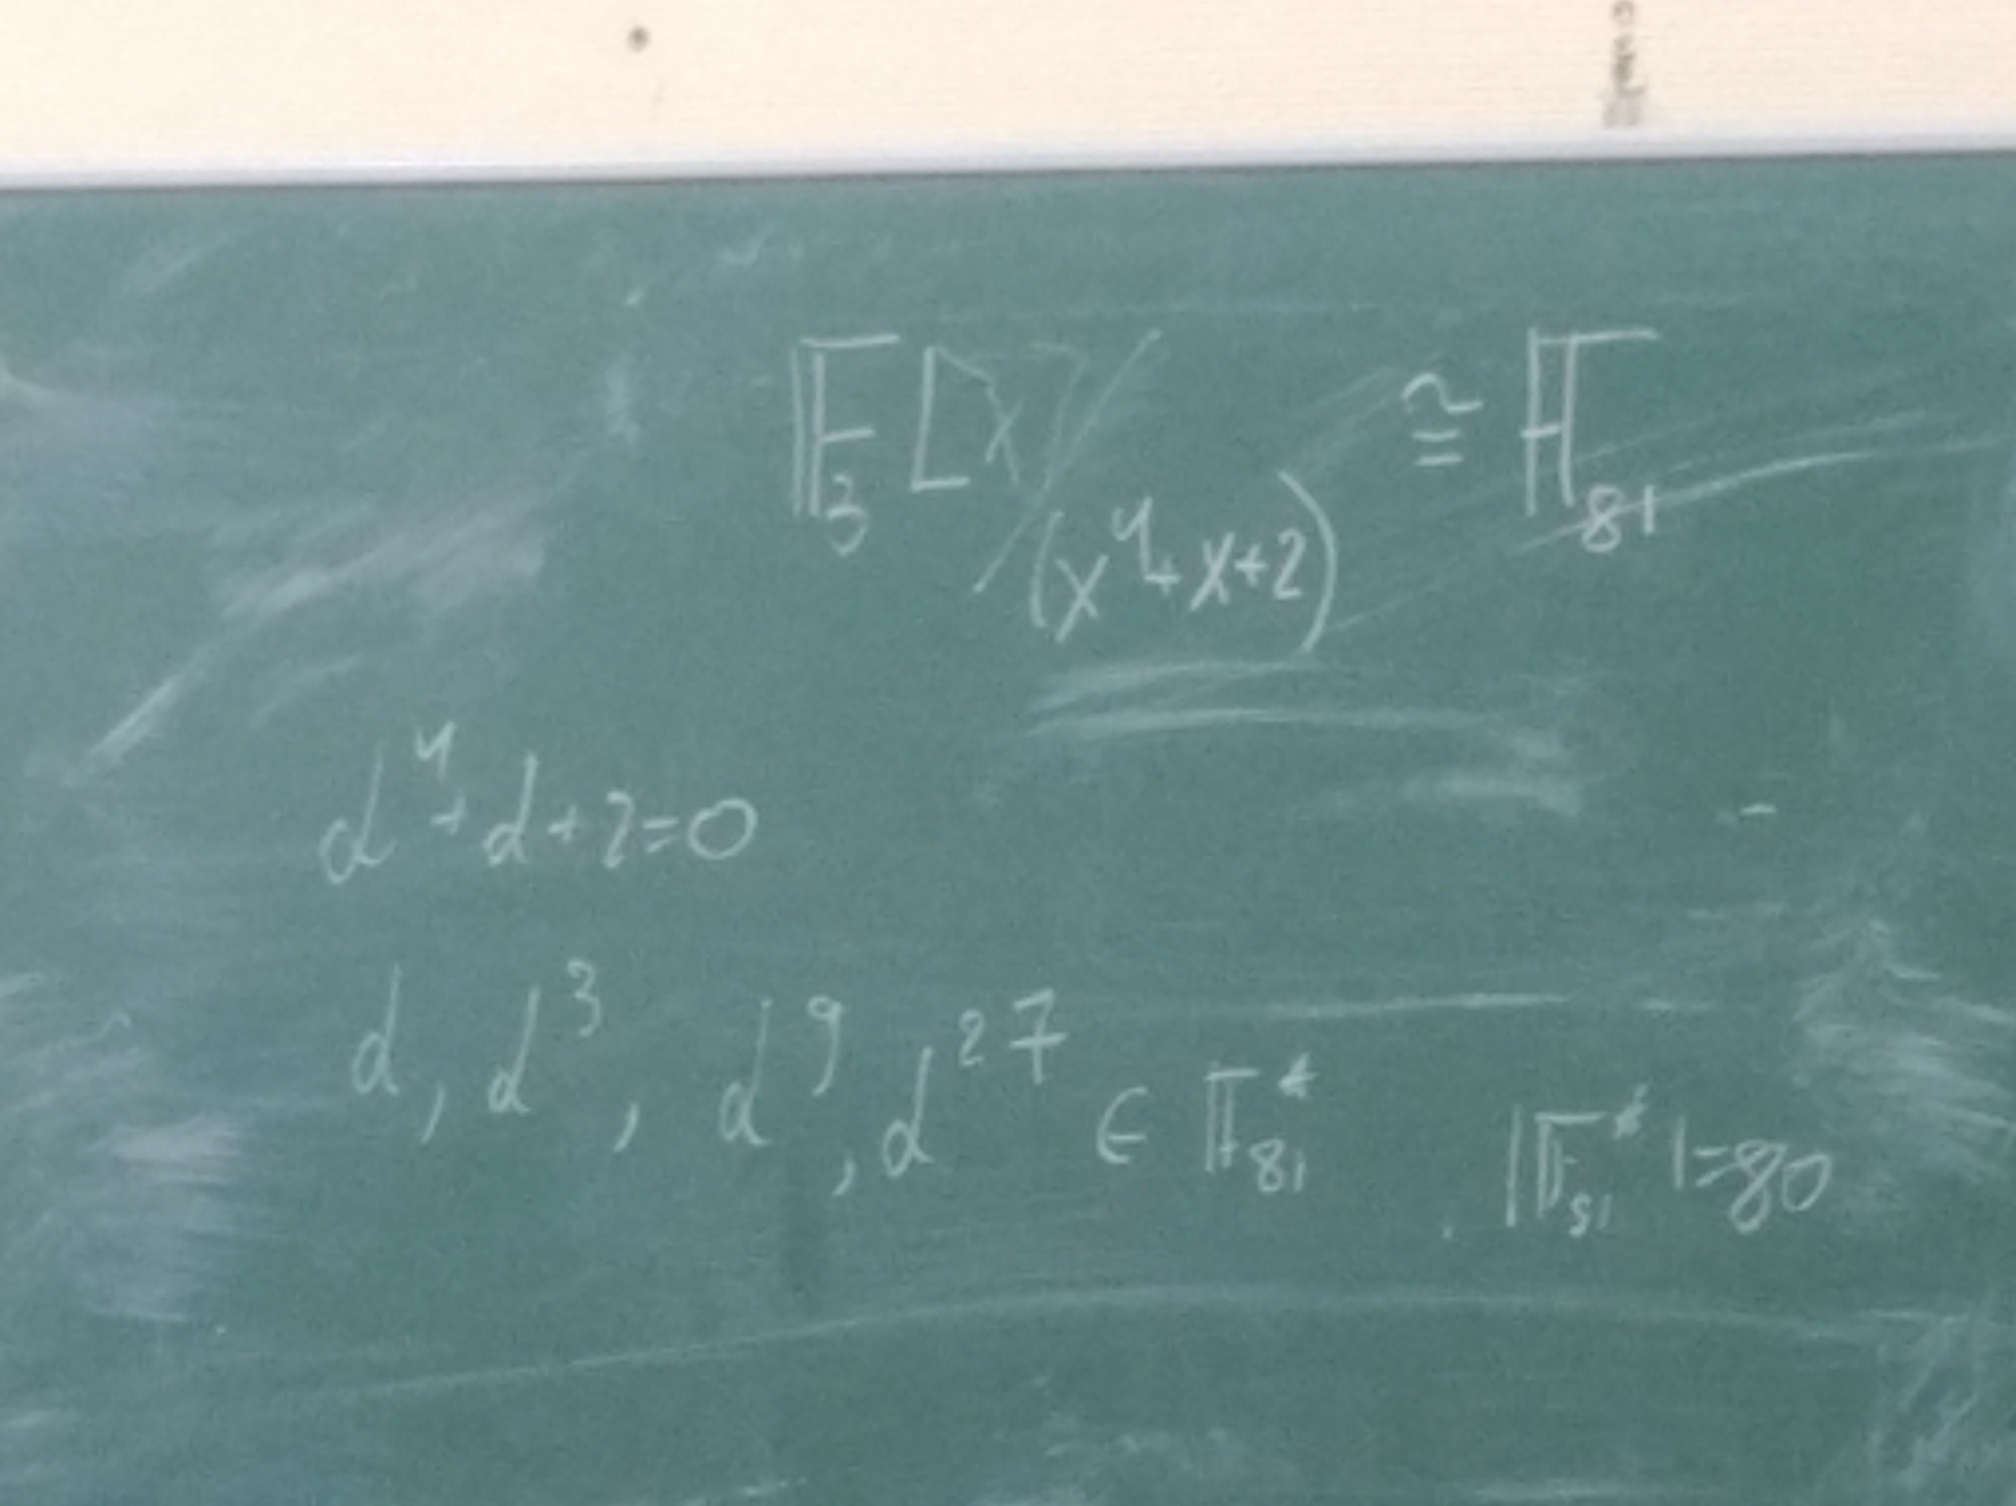 𝔽₃[x]/(x⁴+x+2) ≅ 𝔽₈₁
α⁴+α+2=0
α, α³, α⁹, α²⁷ ∈ 𝔽₈₁* |𝔽₈₁*|=80